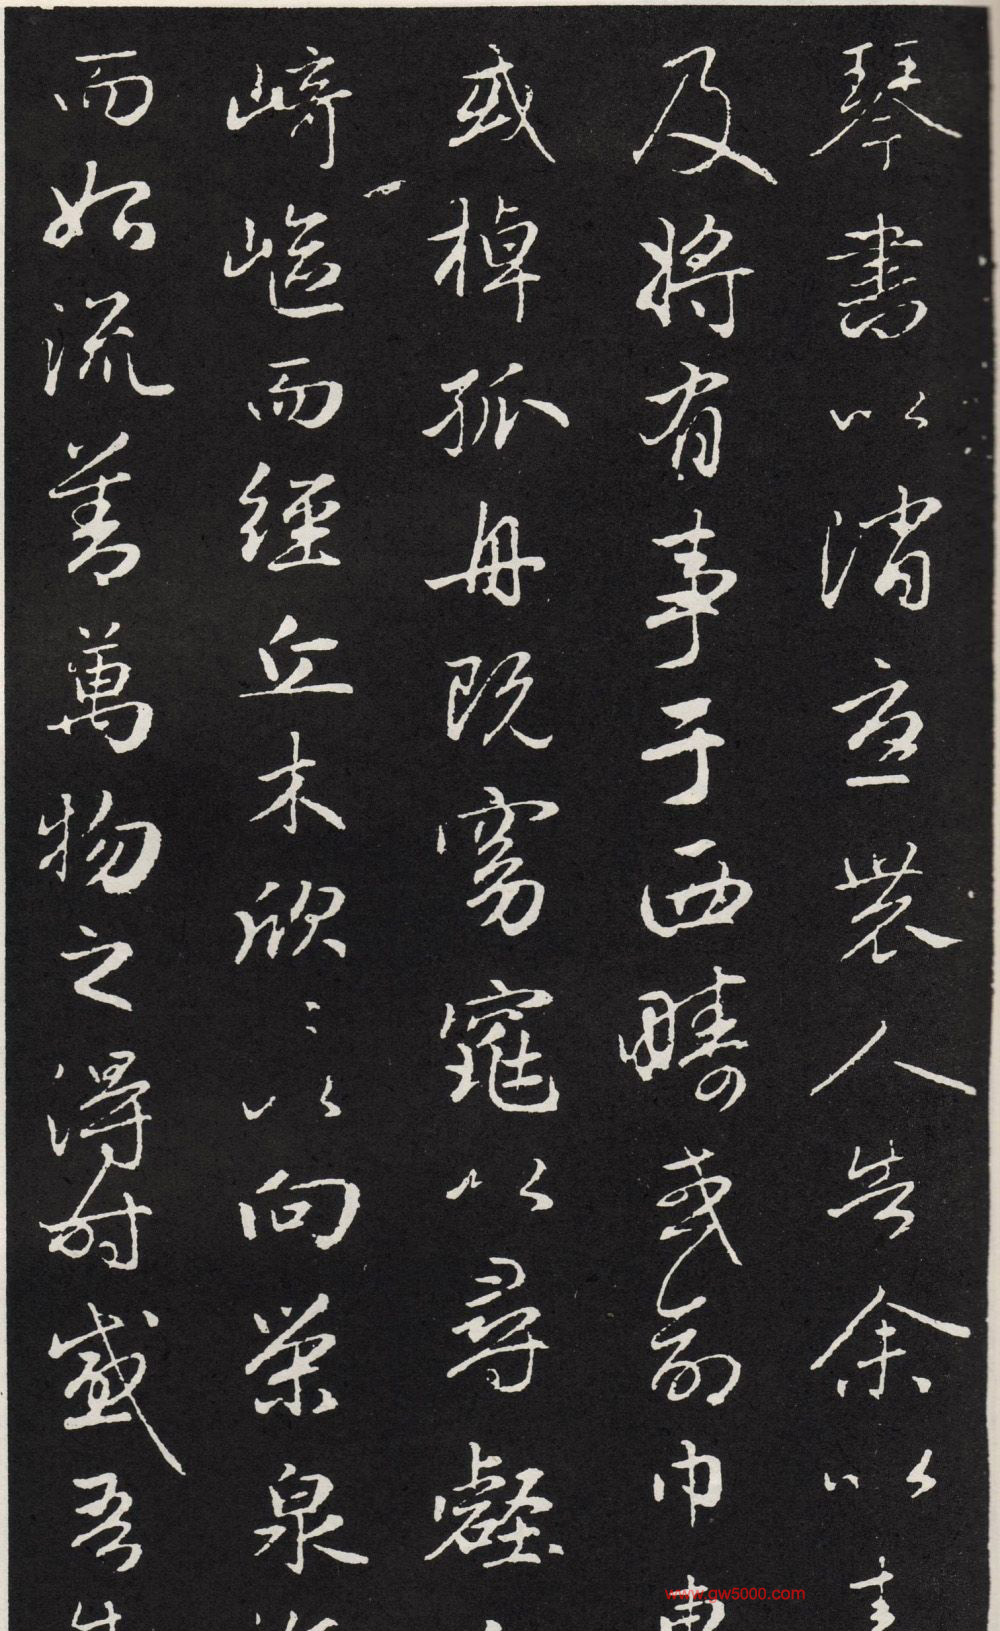 琴書以消憂農人告余以
及將有事于西疇或命巾
或棹孤舟既窈窕以尋壑
崎嶇而經丘木欣〻以向榮泉
而始流善萬物之得時感吾
www.gw5000.com